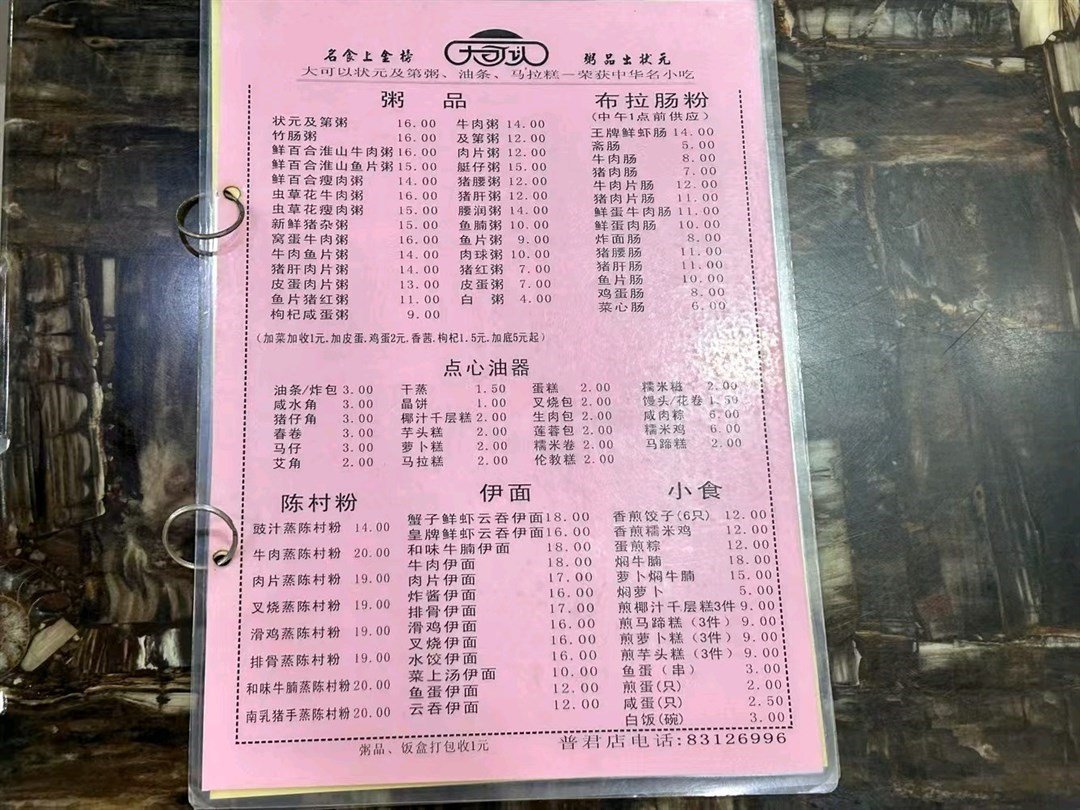 名食上金榜
大可以
粥品出状元
大可以状元及第粥、油条、马拉糕—荣获中华名小吃
粥 品
状元及第粥 16.00
竹肠粥 16.00
鲜百合淮山牛肉粥 16.00
鲜百合淮山鱼片粥 15.00
鲜百合瘦肉粥 14.00
虫草花牛肉粥 16.00
虫草花瘦肉粥 15.00
新鲜猪杂粥 15.00
窝蛋牛肉粥 16.00
牛肉鱼片粥 14.00
猪肝肉片粥 14.00
皮蛋肉片粥 13.00
鱼片猪红粥 11.00
枸杞咸蛋粥 9.00
牛肉粥 14.00
及第粥 12.00
肉片粥 12.00
艇仔粥 15.00
猪腰粥 12.00
猪肝粥 12.00
腰润粥 14.00
鱼腩粥 10.00
鱼片粥 9.00
肉球粥 10.00
猪红粥 7.00
皮蛋粥 7.00
白 粥 4.00
布拉肠粉
(中午1点前供应)
王牌鲜虾肠 14.00
斋肠 5.00
牛肉肠 8.00
猪肉肠 7.00
牛肉片肠 12.00
猪肉片肠 11.00
鲜蛋牛肉肠 11.00
鲜蛋肉肠 10.00
炸面肠 8.00
猪腰肠 11.00
猪肝肠 11.00
鱼片肠 10.00
鸡蛋肠 8.00
菜心肠 6.00
(加菜加收1元.加皮蛋.鸡蛋2元.香茜.枸杞1.5元.加底5元起)
点心油器
油条/炸包 3.00
咸水角 3.00
猪仔角 3.00
春卷 3.00
马仔 3.00
艾角 2.00
干蒸 1.50
晶饼 1.00
椰汁千层糕 2.00
芋头糕 2.00
萝卜糕 2.00
马拉糕 2.00
蛋糕 2.00
叉烧包 2.00
生肉包 2.00
莲蓉包 2.00
糯米卷 2.00
伦教糕 2.00
糯米糍 2.00
馒头/花卷 1.50
咸肉粽 6.00
糯米鸡 6.00
马蹄糕 2.00
陈村粉
豉汁蒸陈村粉 14.00
牛肉蒸陈村粉 20.00
肉片蒸陈村粉 19.00
叉烧蒸陈村粉 19.00
滑鸡蒸陈村粉 19.00
排骨蒸陈村粉 19.00
和味牛腩蒸陈村粉 20.00
南乳猪手蒸陈村粉 20.00
伊面
蟹子鲜虾云吞伊面 18.00
皇牌鲜虾云吞伊面 16.00
和味牛腩伊面 18.00
牛肉伊面 18.00
肉片伊面 17.00
炸酱伊面 16.00
排骨伊面 17.00
滑鸡伊面 16.00
叉烧伊面 16.00
水饺伊面 16.00
菜上汤伊面 10.00
鱼蛋伊面 12.00
云吞伊面 12.00
小食
香煎饺子(6只) 12.00
香煎糯米鸡 12.00
蛋煎粽 12.00
焖牛腩 18.00
萝卜焖牛腩 15.00
焖萝卜 5.00
煎椰汁千层糕3件 9.00
煎马蹄糕(3件) 9.00
煎萝卜糕(3件) 9.00
煎芋头糕(3件) 9.00
鱼蛋(串) 3.00
煎蛋(只) 2.00
咸蛋(只) 2.50
白饭(碗) 3.00
粥品、饭盒打包收1元
普君店电话:83126996